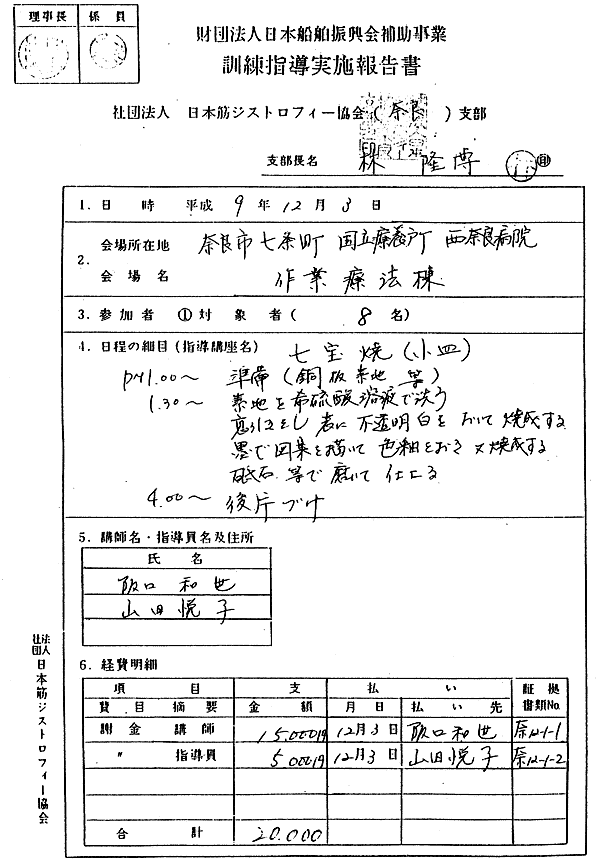 理事長 係員
財団法人日本船舶振興会補助事業
訓練指導実施報告書
社団法人 日本筋ジストロフィー協会(奈良)支部
支部長名 林 隆博 印
1. 日 時 平成 9 年 12 月 3 日
2. 会場所在地 奈良市七条町 国立療養所 西奈良病院
会場名 作業療法棟
3. 参加者 ①対象者( 8 名)
4. 日程の細目(指導講座名) 七宝焼(小皿)
PM1.00〜 準備(銅板素地 等)
1.30〜 素地を希硫酸溶液で洗う
裏引をし 表に不透明白をおいて焼成する
墨で図案を描いて 色釉をおき又焼成する
砥石等で磨いて仕上る
4.00〜 後片づけ
5. 講師名・指導員名及住所
氏 名
阪口 和也
山田悦子
6. 経費明細
項 目 支 払 い 証拠
費目 摘要 金額 月日 払い先 書類No.
謝金 講師 15000円 12月3日 阪口和也 奈12-1-1
〃 指導員 5000円 12月3日 山田悦子 奈12-1-2
合 計 20.000
社団法人 日本筋ジストロフィー協会